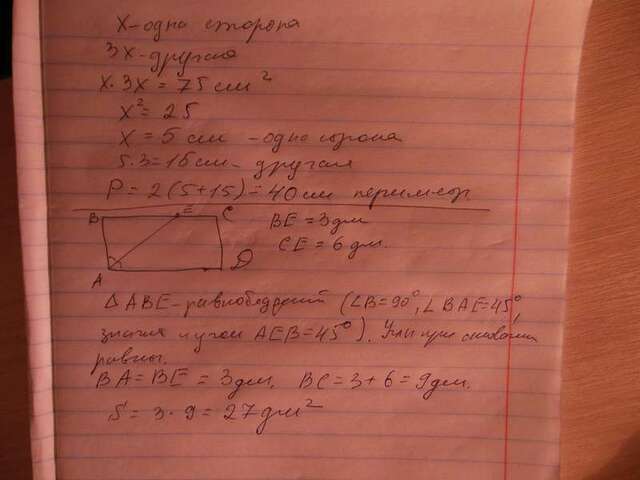 X - одна сторона
3X - другая
X · 3X = 75 см²
X² = 25
X = 5 см - одна сторона
5 · 3 = 15 см - другая
P = 2(5+15) = 40 см периметр.
B E C BE = 3 дм
CE = 6 дм.
A D
△ ABE - равнобедренный (∠B=90°, ∠BAE=45°,
значит и угол AEB=45°). Углы при основании
равны.
BA = BE = 3 дм. BC = 3 + 6 = 9 дм.
S = 3 · 9 = 27 дм²